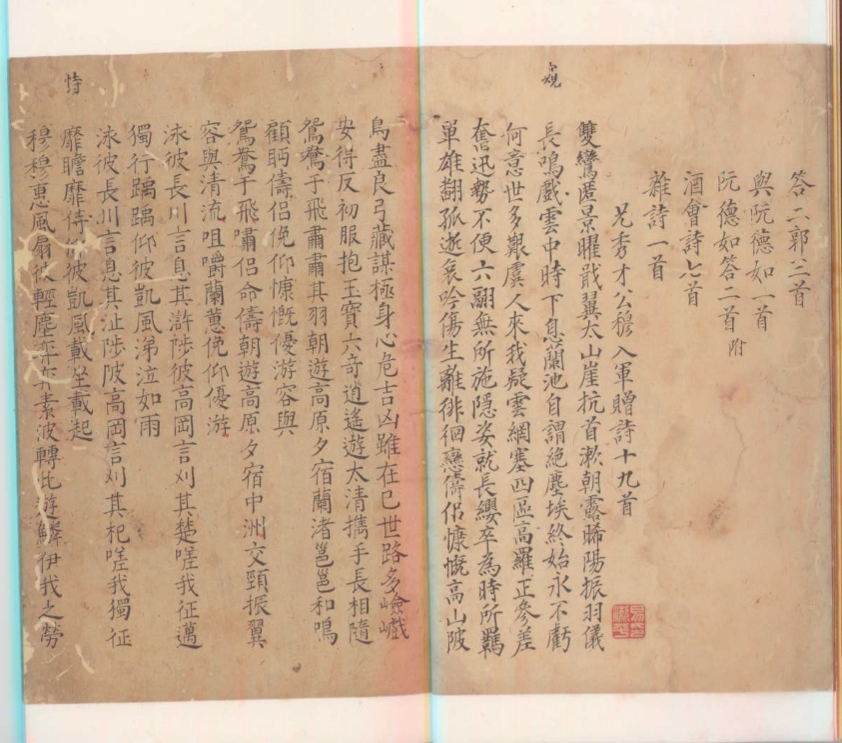 答二郭三首
與阮德如一首
阮德如答二首附
酒會詩七首
雜詩一首
兄秀才公穆入軍贈詩十九首
雙鸞匿景曜戢翼太山崖抗首漱朝露晞陽振羽儀
長鳴戲雲中時下息蘭池自謂絕塵埃終始永不虧
何意世多艱虞人來我疑雲網塞四區高羅正參差
奮迅勢不便六翮無所施隱姿就長纓卒為時所羈
單雄翻孤逝哀吟傷生離徘徊戀儔侶慷慨高山陂
鳥盡良弓藏謀極身心危吉凶雖在己世路多嶮巇
安得反初服抱玉寶六奇逍遙遊太清攜手長相隨
鴛鴦于飛肅肅其羽朝遊高原夕宿蘭渚邕邕和鳴
顧眄儔侶俛仰慷慨優游容與
鴛鴦于飛嘯侶命儔朝遊高原夕宿中洲交頸振翼
容與清流咀嚼蘭蕙俛仰優游
泳彼長川言息其滸陟彼高岡言刈其楚嗟我征邁
獨行踽踽仰彼凱風涕泣如雨
泳彼長川言息其沚陟陂高岡言刈其杞嗟我獨征
恃
靡瞻靡恃仰彼凱風載坐載起
穆穆惠風扇彼輕塵弈弈素波轉此遊鱗伊我之勞